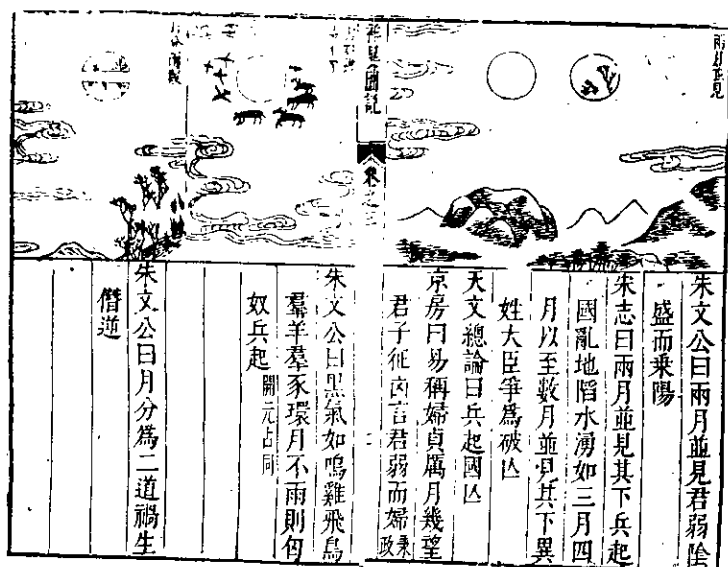 兩月並見
朱文公曰兩月並見君弱陰
盛而乘陽
宋志曰兩月並見其下兵起
國亂地陷水湧如三月四
月以至數月並見其下異
姓大臣爭為破亾
天文總論曰兵起國亾
京房曰易稱婦貞厲月幾望
君子征凶言君弱而婦乘政
卷之三
朱文公曰黑氣如烏雞飛鳥
羣羊羣豕環月不雨則匈
奴兵起 開元占同
朱文公曰月分為二道禍生
僭逆